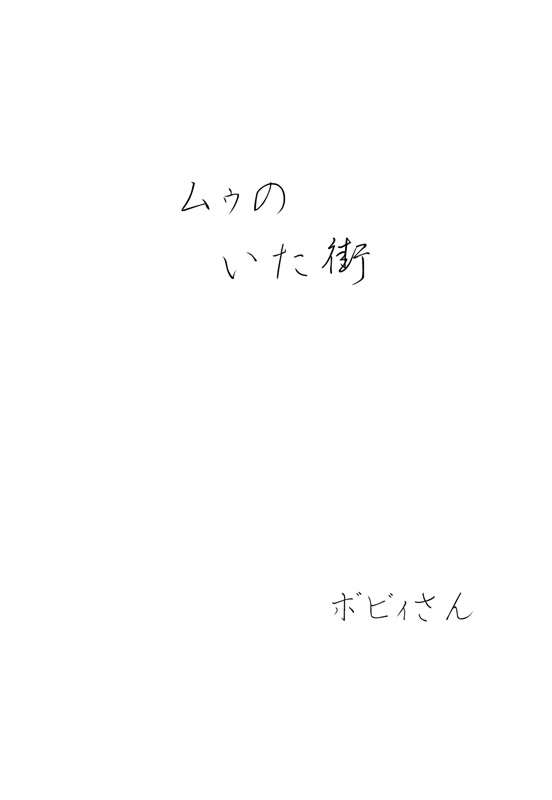 ムゥの
いた街
ボビィさん